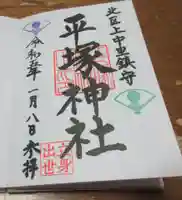 北区上中里鎮守
平塚神社
令和五年一月八日参拝
立身
出世